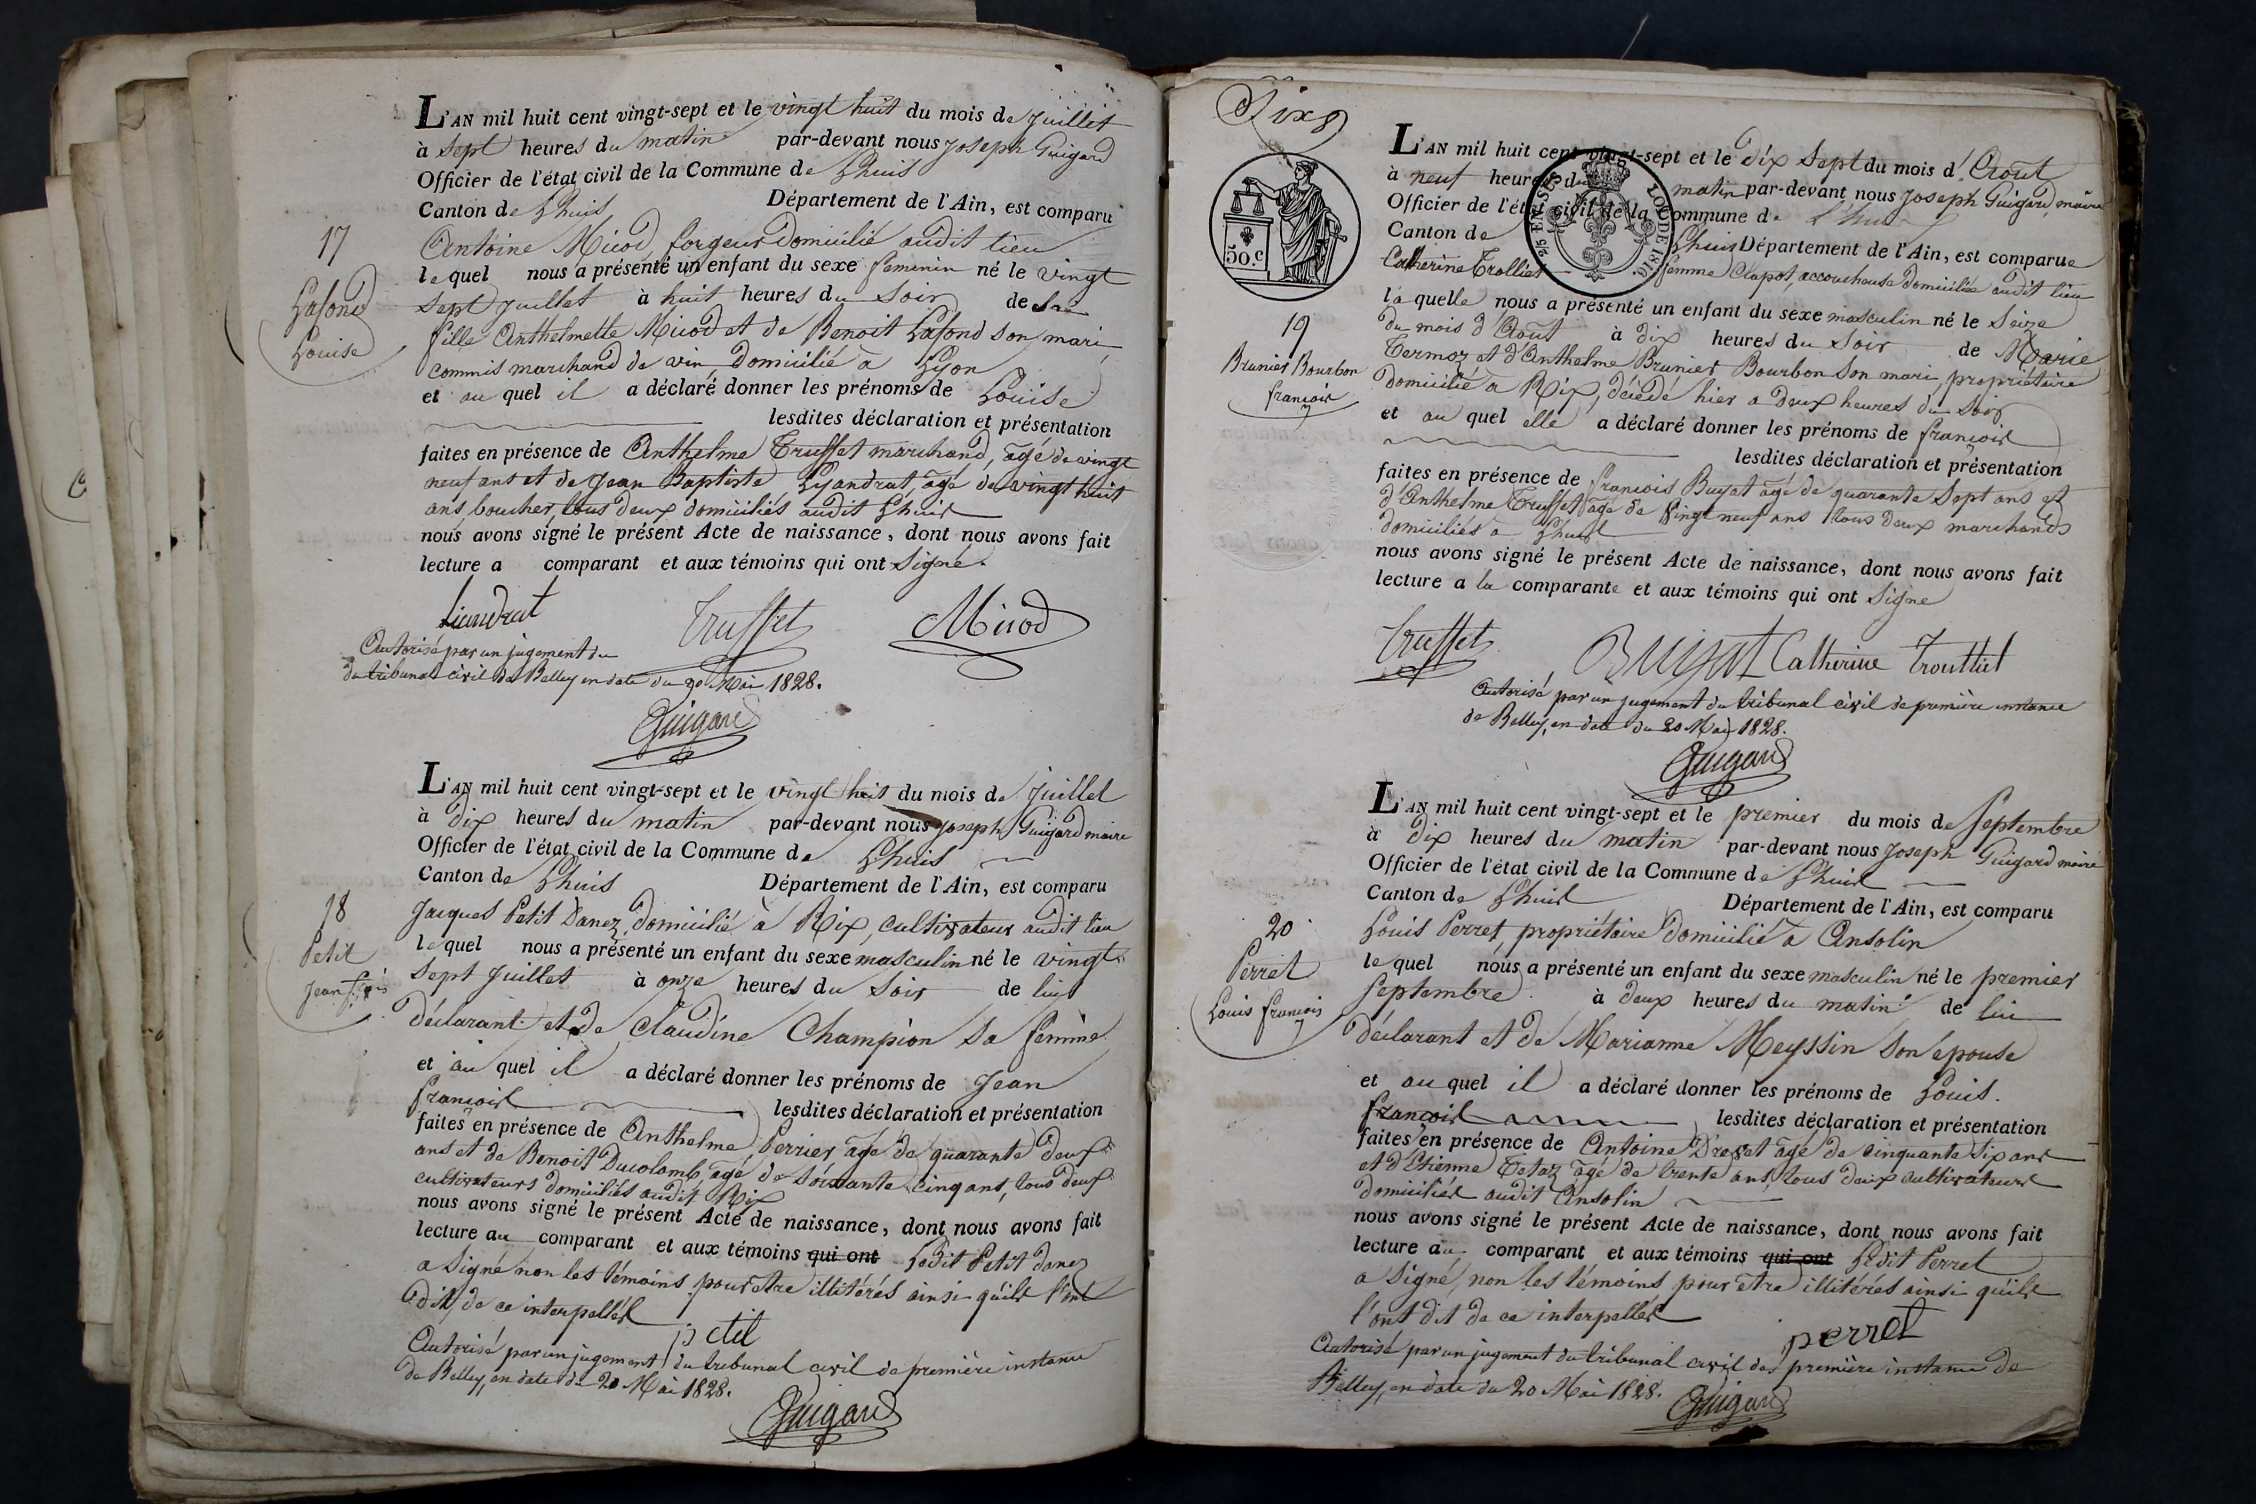 L'AN mil huit cent vingt-sept et le vingt huit du mois de Juillet
à Sept heures du matin par-devant nous Joseph Guigard
Officier de l'état civil de la Commune de Lhuis
Canton de Lhuis Département de l'Ain, est comparu
17
Lafond
Louise
Antoine Micod, forgeur domicilié audit lieu
lequel nous a présenté un enfant du sexe feminin né le vingt
Sept Juillet à huit heures du Soir de Sa
fille Anthelmette Micod et de Benoit Lafond son mari,
commis marchand de vin, domicilié à Lyon
et au quel il a déclaré donner les prénoms de Louise
lesdites déclaration et présentation
faites en présence de Anthelme Truffet marchand, agé de vingt
neuf ans et de Jean Baptiste Lyandrat, agé de vingt huit
ans, boucher, tous deux domiciliés audit Lhuis
nous avons signé le présent Acte de naissance, dont nous avons fait
lecture a comparant et aux témoins qui ont Signé.
Liandrat Truffet Micod
Autorisé par un jugement du
du tribunal civil de Belley en date du 20 Mai 1828.
Guigard
L'AN mil huit cent vingt-sept et le vingt huit du mois de Juillet
à dix heures du matin par-devant nous Joseph Guigard maire
Officier de l'état civil de la Commune de Lhuis
Canton de Lhuis Département de l'Ain, est comparu
18
Petit
Jean fçois
Jacques Petit Danez, domicilié à Rix, cultivateur audit lieu
lequel nous a présenté un enfant du sexe masculin né le vingt
Sept Juillet à onze heures du Soir de lui
déclarant et de Claudine Champion sa femme
et au quel il a déclaré donner les prénoms de Jean
françois lesdites déclaration et présentation
faites en présence de Anthelme Perrier agé de quarante deux
ans et de Benoit Ducolomb, agé de Soixante cinq ans, tous deux
cultivateurs domiciliés audit Rix
nous avons signé le présent Acte de naissance, dont nous avons fait
lecture au comparant et aux témoins qui ont Ledit Petit danez
a Signé non les témoins pour etre illitérés ainsi qu'ils l'ont
dit, de ce interpellés
petit
Autorisé par un jugement du tribunal civil de première instance
de Belley, en date du 20 Mai 1828.
Guigard
Rix
50.C
L'AN mil huit cent vingt-sept et le dix Sept du mois d'Aout
à neuf heures du matin par-devant nous Joseph Guigard, maire
Officier de l'état civil de la Commune de Lhuis
Canton de Lhuis Département de l'Ain, est comparue
LOI DE 1816.
19
Brunier Bourbon
françois
Catherine Trolliet femme Clapot, accoucheuse domiciliée audit lieu
laquelle nous a présenté un enfant du sexe masculin né le Seize
du mois d'Aout à dix heures du Soir de Marie
Termoz et d'Anthelme Brunier Bourbon son mari, propriétaire
domicilié à Rix, décédé hier a deux heures du Soir
et au quel elle a déclaré donner les prénoms de françois
lesdites déclaration et présentation
faites en présence de françois Buyat agé de quarante Sept ans et
d'Anthelme Truffet agé de vingt neuf ans tous deux marchands
domiciliés a Lhuis
nous avons signé le présent Acte de naissance, dont nous avons fait
lecture a la comparante et aux témoins qui ont Signé
Truffet Buyat Catherine Trouttiet
Autorisé par un jugement du tribunal civil de première instance
de Belley, en date du 20 Mai 1828.
Guigard
L'AN mil huit cent vingt-sept et le premier du mois de Septembre
à dix heures du matin par-devant nous Joseph Guigard maire
Officier de l'état civil de la Commune de Lhuis
Canton de Lhuis Département de l'Ain, est comparu
20
Perret
Louis françois
Louis Perret, propriétaire domicilié à Ansolin
lequel nous a présenté un enfant du sexe masculin né le premier
Septembre à deux heures du matin de lui
déclarant et de Marianne Meyssin son épouse
et au quel il a déclaré donner les prénoms de Louis.
françois lesdites déclaration et présentation
faites en présence de Antoine Drevet agé de cinquante Six ans
et d'Etienne Tetaz agé de trente ans, tous deux cultivateurs
domiciliés audit Ansolin
nous avons signé le présent Acte de naissance, dont nous avons fait
lecture au comparant et aux témoins qui ont Ledit Perret
a Signé, non les témoins pour etre illitérés ainsi qu'ils
l'ont dit de ce interpellés
perret
Autorisé par un jugement du tribunal civil de première instance de
Belley, en date du 20 Mai 1828.
Guigard